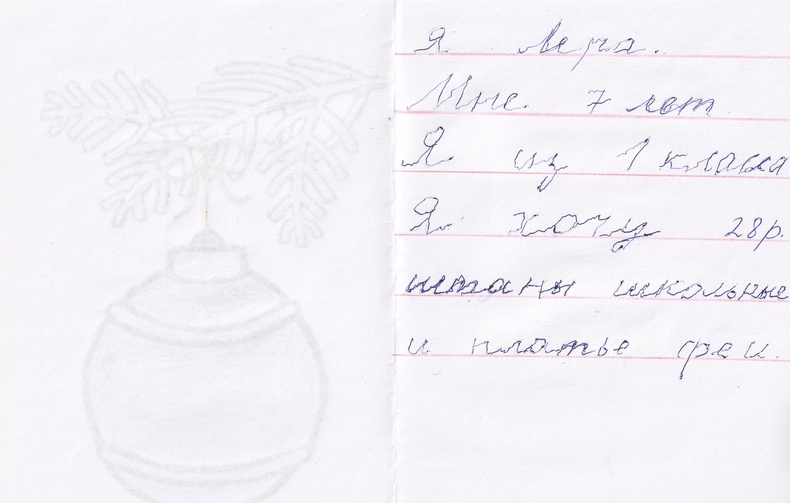 Я Лера.
Мне 7 лет
Я из 1 класса
Я хочу 28р.
штаны школьные
и платье феи.